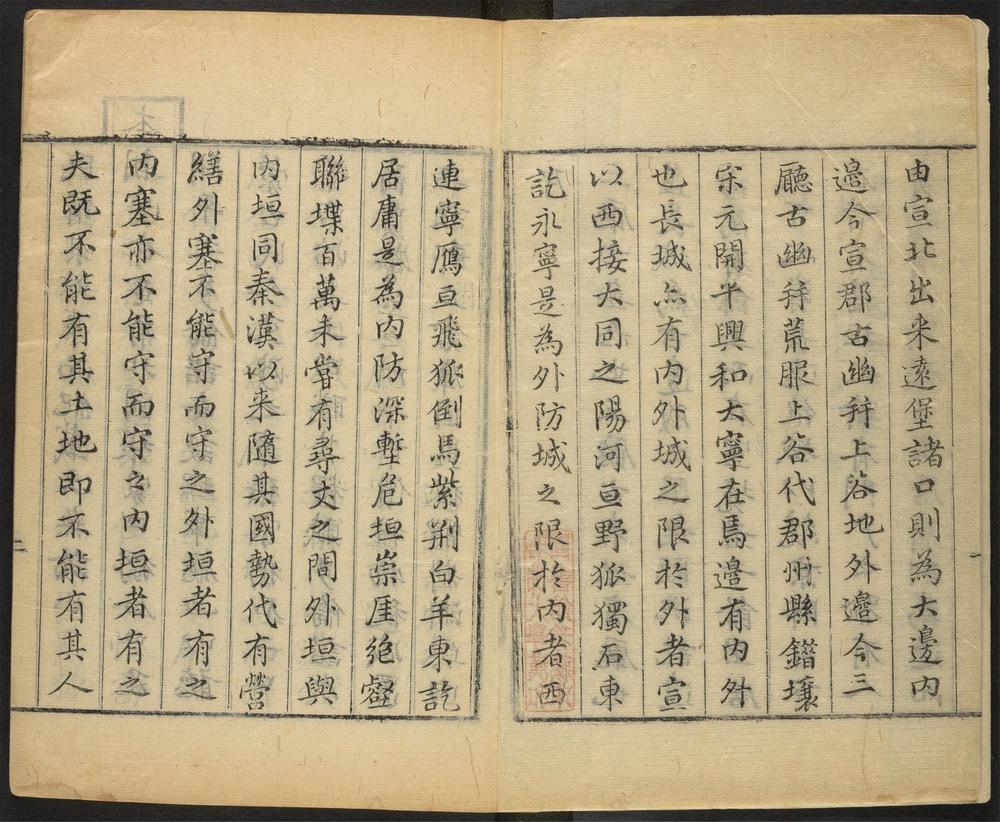 由宣北出来遠堡諸口則為大邊内
邉今宣郡古幽并上谷地外邉今三
廳古幽并荒服上谷代郡州縣錯壤
宋元開平興和大寧在焉邉有内外
也長城亦有内外城之限於外者宣
以西接大同之陽河亘野狐獨石東
訖永寧是為外防城之限於内者西
連寧鴈亘飛狐倒馬紫荆白羊東訖
居庸是為内防深塹危垣崇厓絶壑
聯堞百萬未嘗有尋丈之間外垣與
内垣同秦漢以来随其國勢代有營
繕外塞不能守而守之外垣者有之
内塞亦不能守而守之内垣者有之
夫既不能有其土地即不能有其人
二